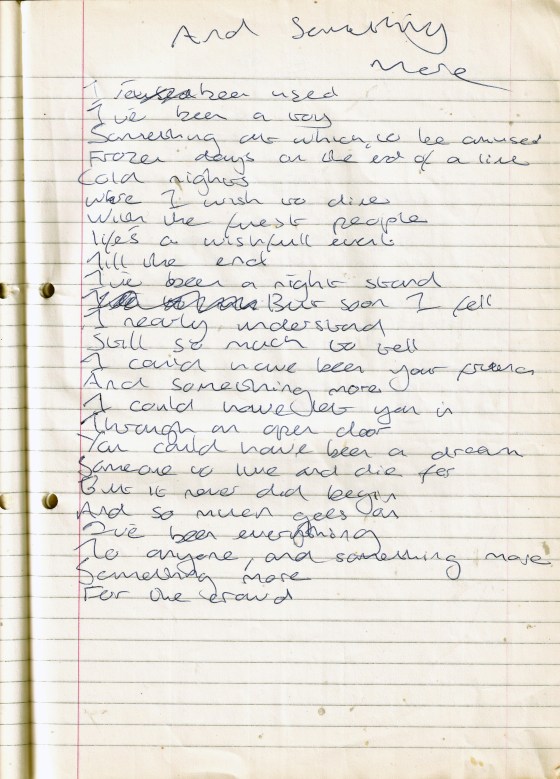 And Something
More
I been used
I've been a toy
Something at which to be amused
Frozen days on the end of a line
Cold nights
where I wish to dine
With the finest people
life's a wishfull event
Till the end
I've been a night stand
But soon I fell
I nearly understand
Still so much to tell
I could have been your friend
And something more
I could have let you in
Through an open door
You could have been a dream
Someone to live and die for
But it never did begin
And so much goes on
I've been everything
To anyone, and something more
Something more
For the crowd